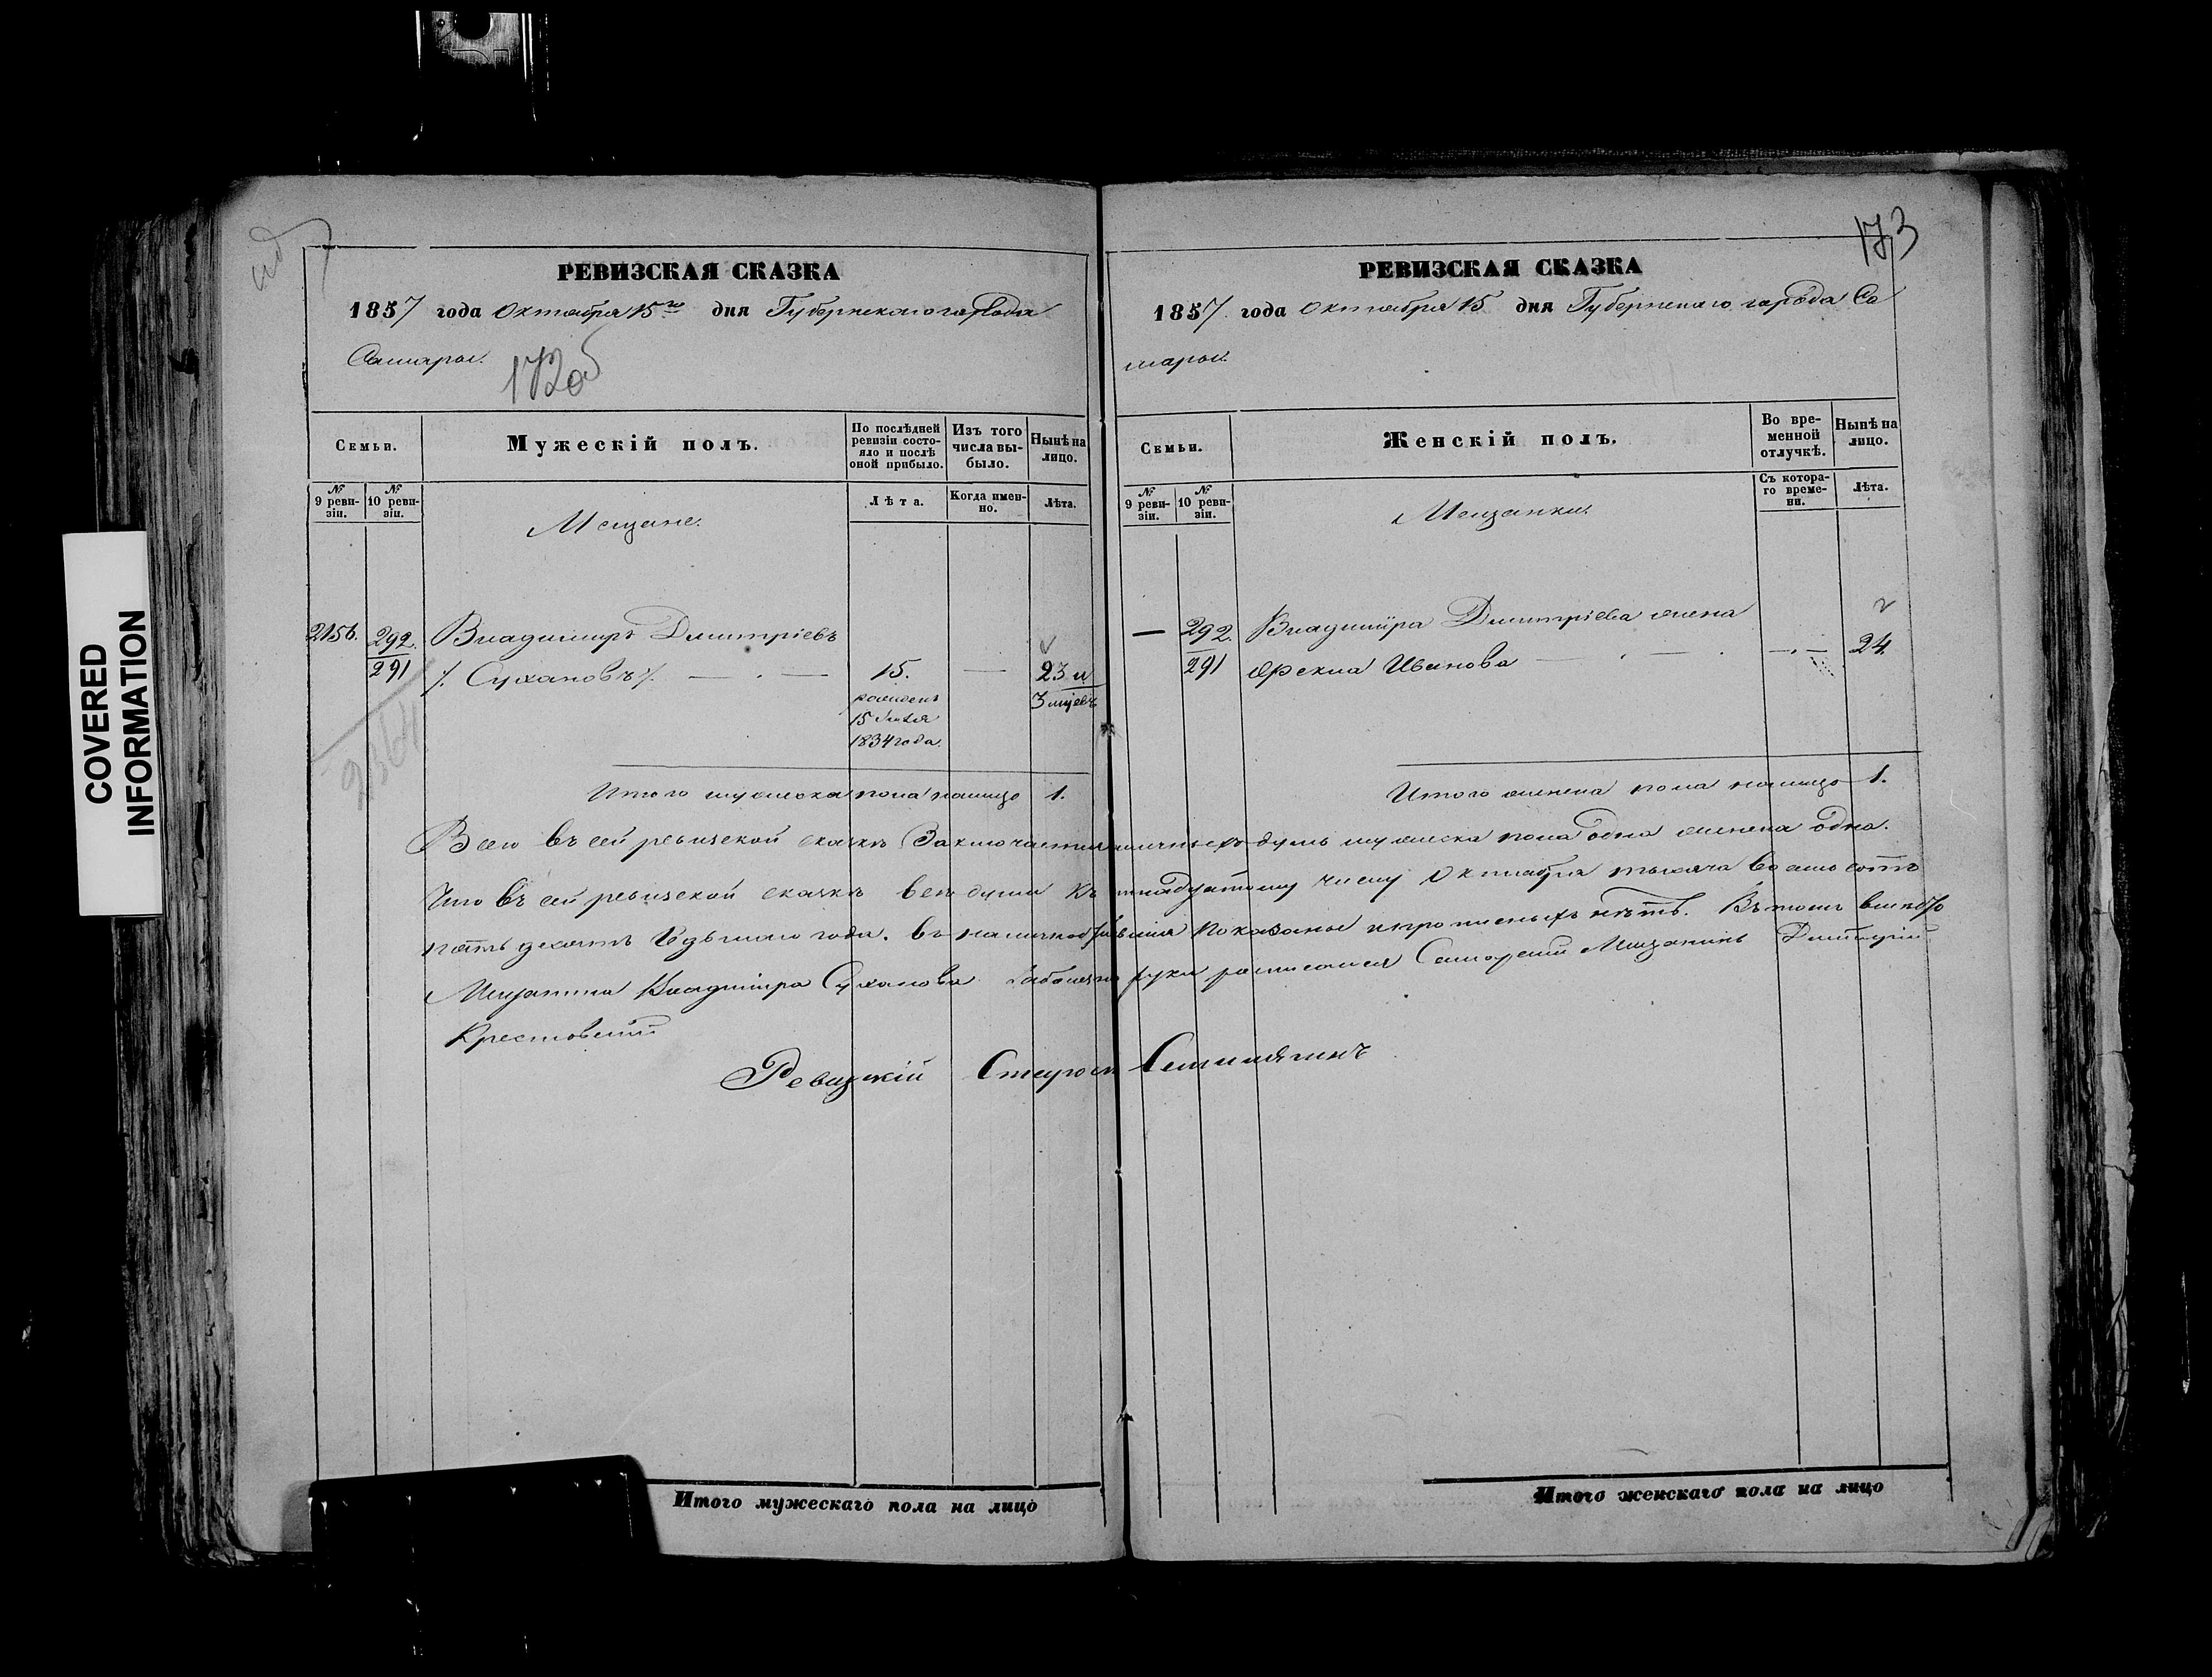 COVERED
INFORMATION
173
РЕВИЗСКАЯ СКАЗКА
1857 года Октября 15го дня Губернскаго города
Самары.
172об
Семьи.
Мужескій полъ.
По послѣдней ревизіи состояло и послѣ оной прибыло.
Изъ того числа выбыло.
Нынѣ на лицо.
№ 9 ревизіи.
№ 10 ревизіи.
Мещане.
Лѣта.
Когда именно.
Лѣта.
2156. 292. Владимиръ Дмитріевъ
291 /. Сухановъ /. 15. — 23 и
рожденъ 3 мцевъ
15 Іюля
1834 года.
2364
Итого мужеска пола налицо 1.
РЕВИЗСКАЯ СКАЗКА
1857 года Октября 15 дня Губернскаго города Са
мары.
Семьи.
Женскій полъ.
Во временной отлучкѣ.
Нынѣ на лицо.
№ 9 ревизіи.
№ 10 ревизіи.
Мещанки.
Съ котораго времени.
Лѣта.
— 292. Владиміра Дмитріева жена
291 Ѳекла Иванова — . — . —.— 24.
Итого женска пола налицо 1.
Всего въ сей ревизской сказкѣ заключается наличныхъ душъ мужеска пола одна женска одна.
Что въ сей ревизской сказкѣ всѣ души къ пятнадцатому числу Октября тысяча восемь сотъ
пять десятъ седьмаго года. въ наличности бывшія показаны и прописныхъ нѣтъ. Въ томъ вместо
Мещанина Владиміра Суханова руки росписался Самарский Мещанинъ Дмитрій
Крестовский
Ревизкій Старост
Итого мужескаго пола на лицо
Итого женскаго пола на лицо